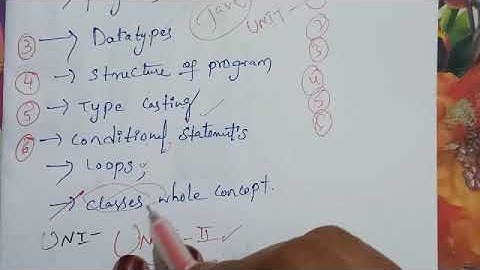 Java
UNIT-
③ → Datatypes
④ → structure of program
⑤ → Type Casting ✓
⑥ → Conditional statements
→ Loops;
→ classes whole concept.
UNI- UNIT-II ✓
②
③
④
⑤